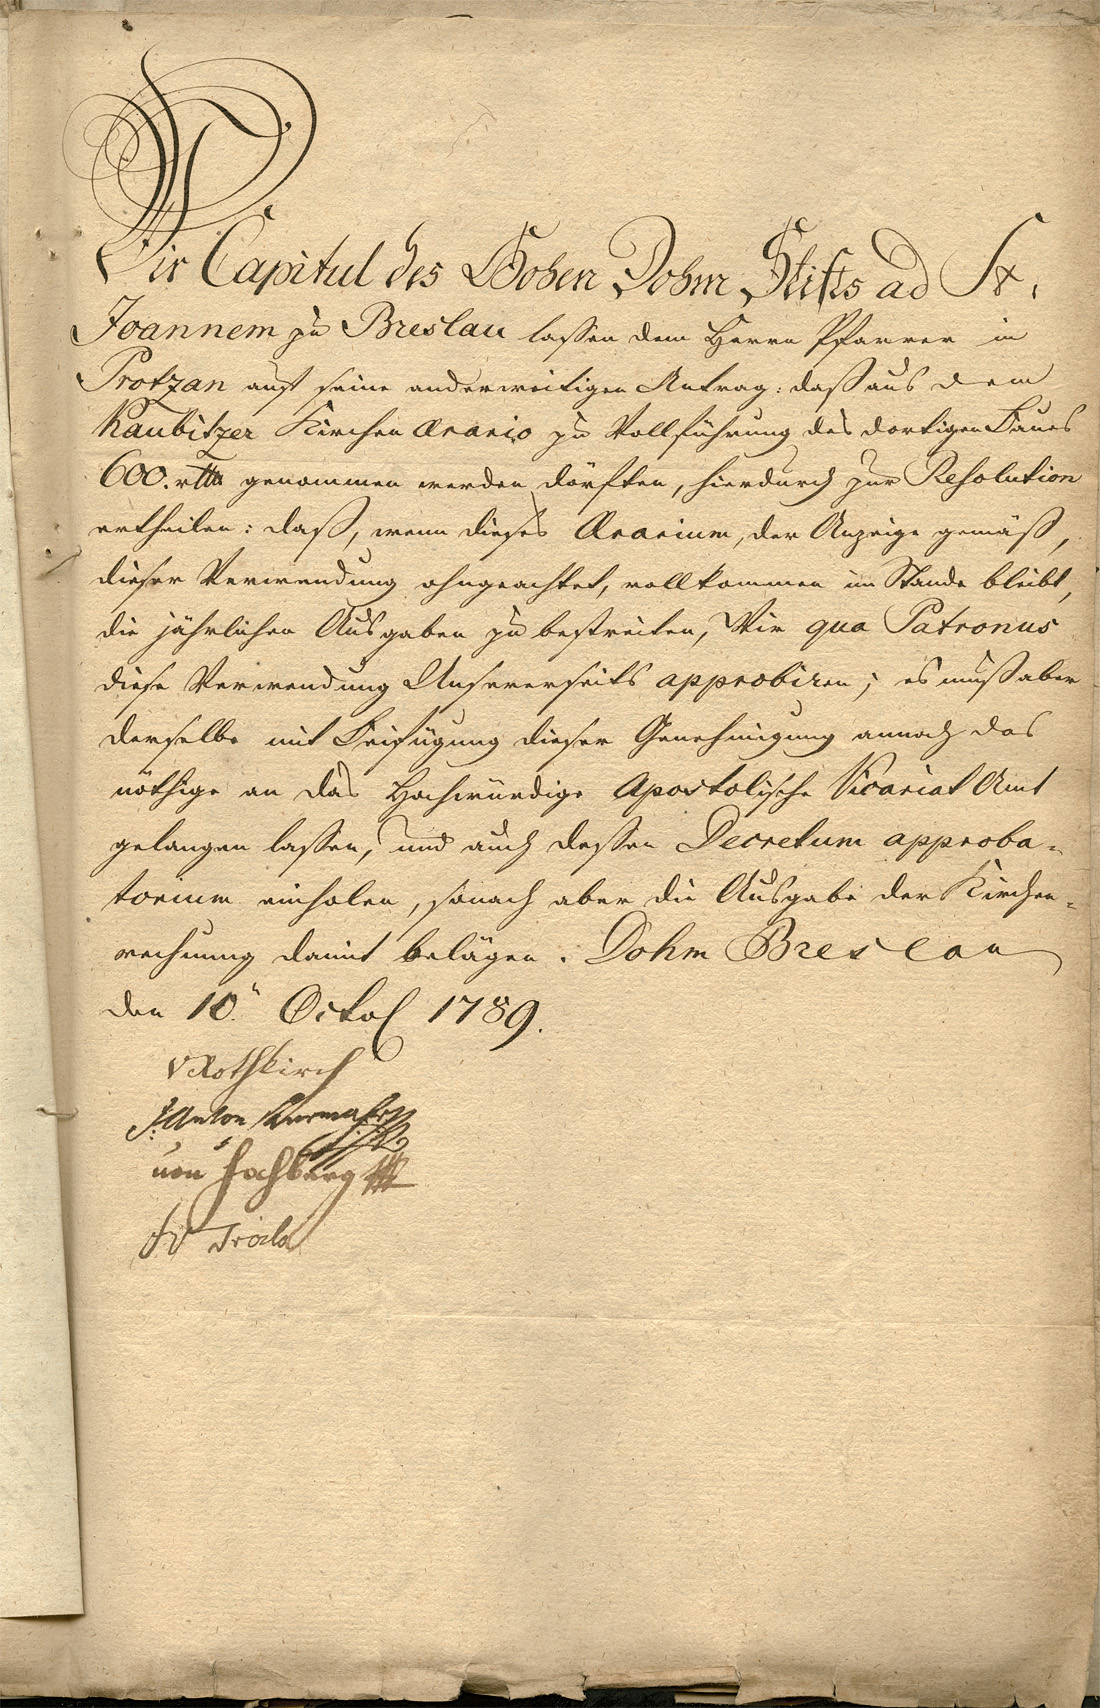 Wir Capitul des Hohen Dohm Stifts ad St.
Joannem zu Breslau lassen dem Herrn Pfarrer in
Protzan auf seine anderweitigen Antrag: daß aus dem
Kaubitzer Kirchen Ærario zu Vollführung des dortigen Baues
600. rthl genommen werden dörften, hierdurch zur Resolution
ertheilen: daß, wenn dieses Ærarium, der Anzeige gemäß,
dieser Verwendung ohngeachtet, vollkommen im Stande bleibt,
die jährlichen Ausgaben zu bestreiten, Wir qua Patronus
diese Verwendung Unsererseits approbiren; es muß aber
derselbe mit Beifügung dieser Genehmigung annoch das
nöthige an das Hochwürdige Apostolische Vicariat Amt
gelangen lassen, und auch dessen Decretum approba-
torium einholen, sonach aber die Ausgabe der Kirchen-
rechnung damit belägen. Dohm Breslau
den 10. Octob 1789.
v Rothkirch
J: Anton
von Hochberg